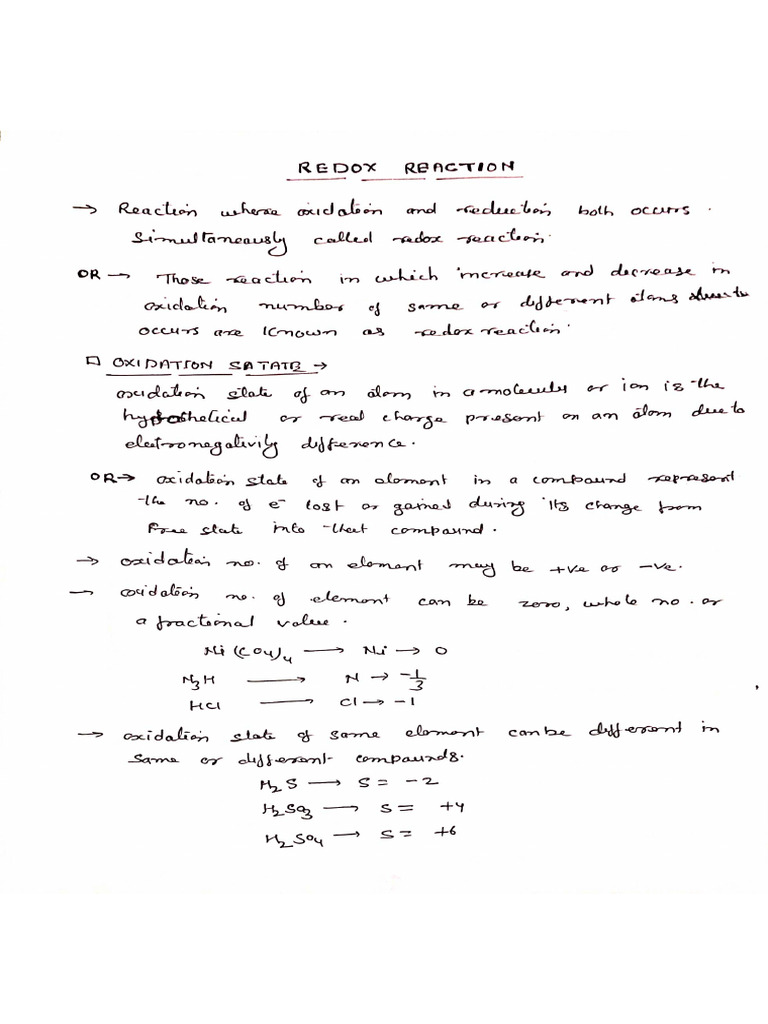 REDOX REACTION
→ Reaction where oxidation and reduction both occurs.
Simultaneously called redox reaction.
OR → Those reaction in which increase and decrease in
oxidation number of same or different atoms
occurs are known as redox reaction.
□ OXIDATION SATATE →
oxidation state of an atom in a molecule or ion is the
hypothetical or real charge present on an atom due to
electronegativity difference.
OR → oxidation state of an element in a compound represent
the no. of e⁻ lost or gained during its change from
Free state into that compound.
→ oxidation no. of an element may be +ve or -ve.
→ oxidation no. of element can be zero, whole no. or
a fractional value.
Ni(CO4)4 → Ni → 0
N3H → N → -1/3
HCl → Cl → -1
→ oxidation state of same element can be different in
same or different compounds.
H2S → S = -2
H2SO3 → S = +4
H2SO4 → S = +6